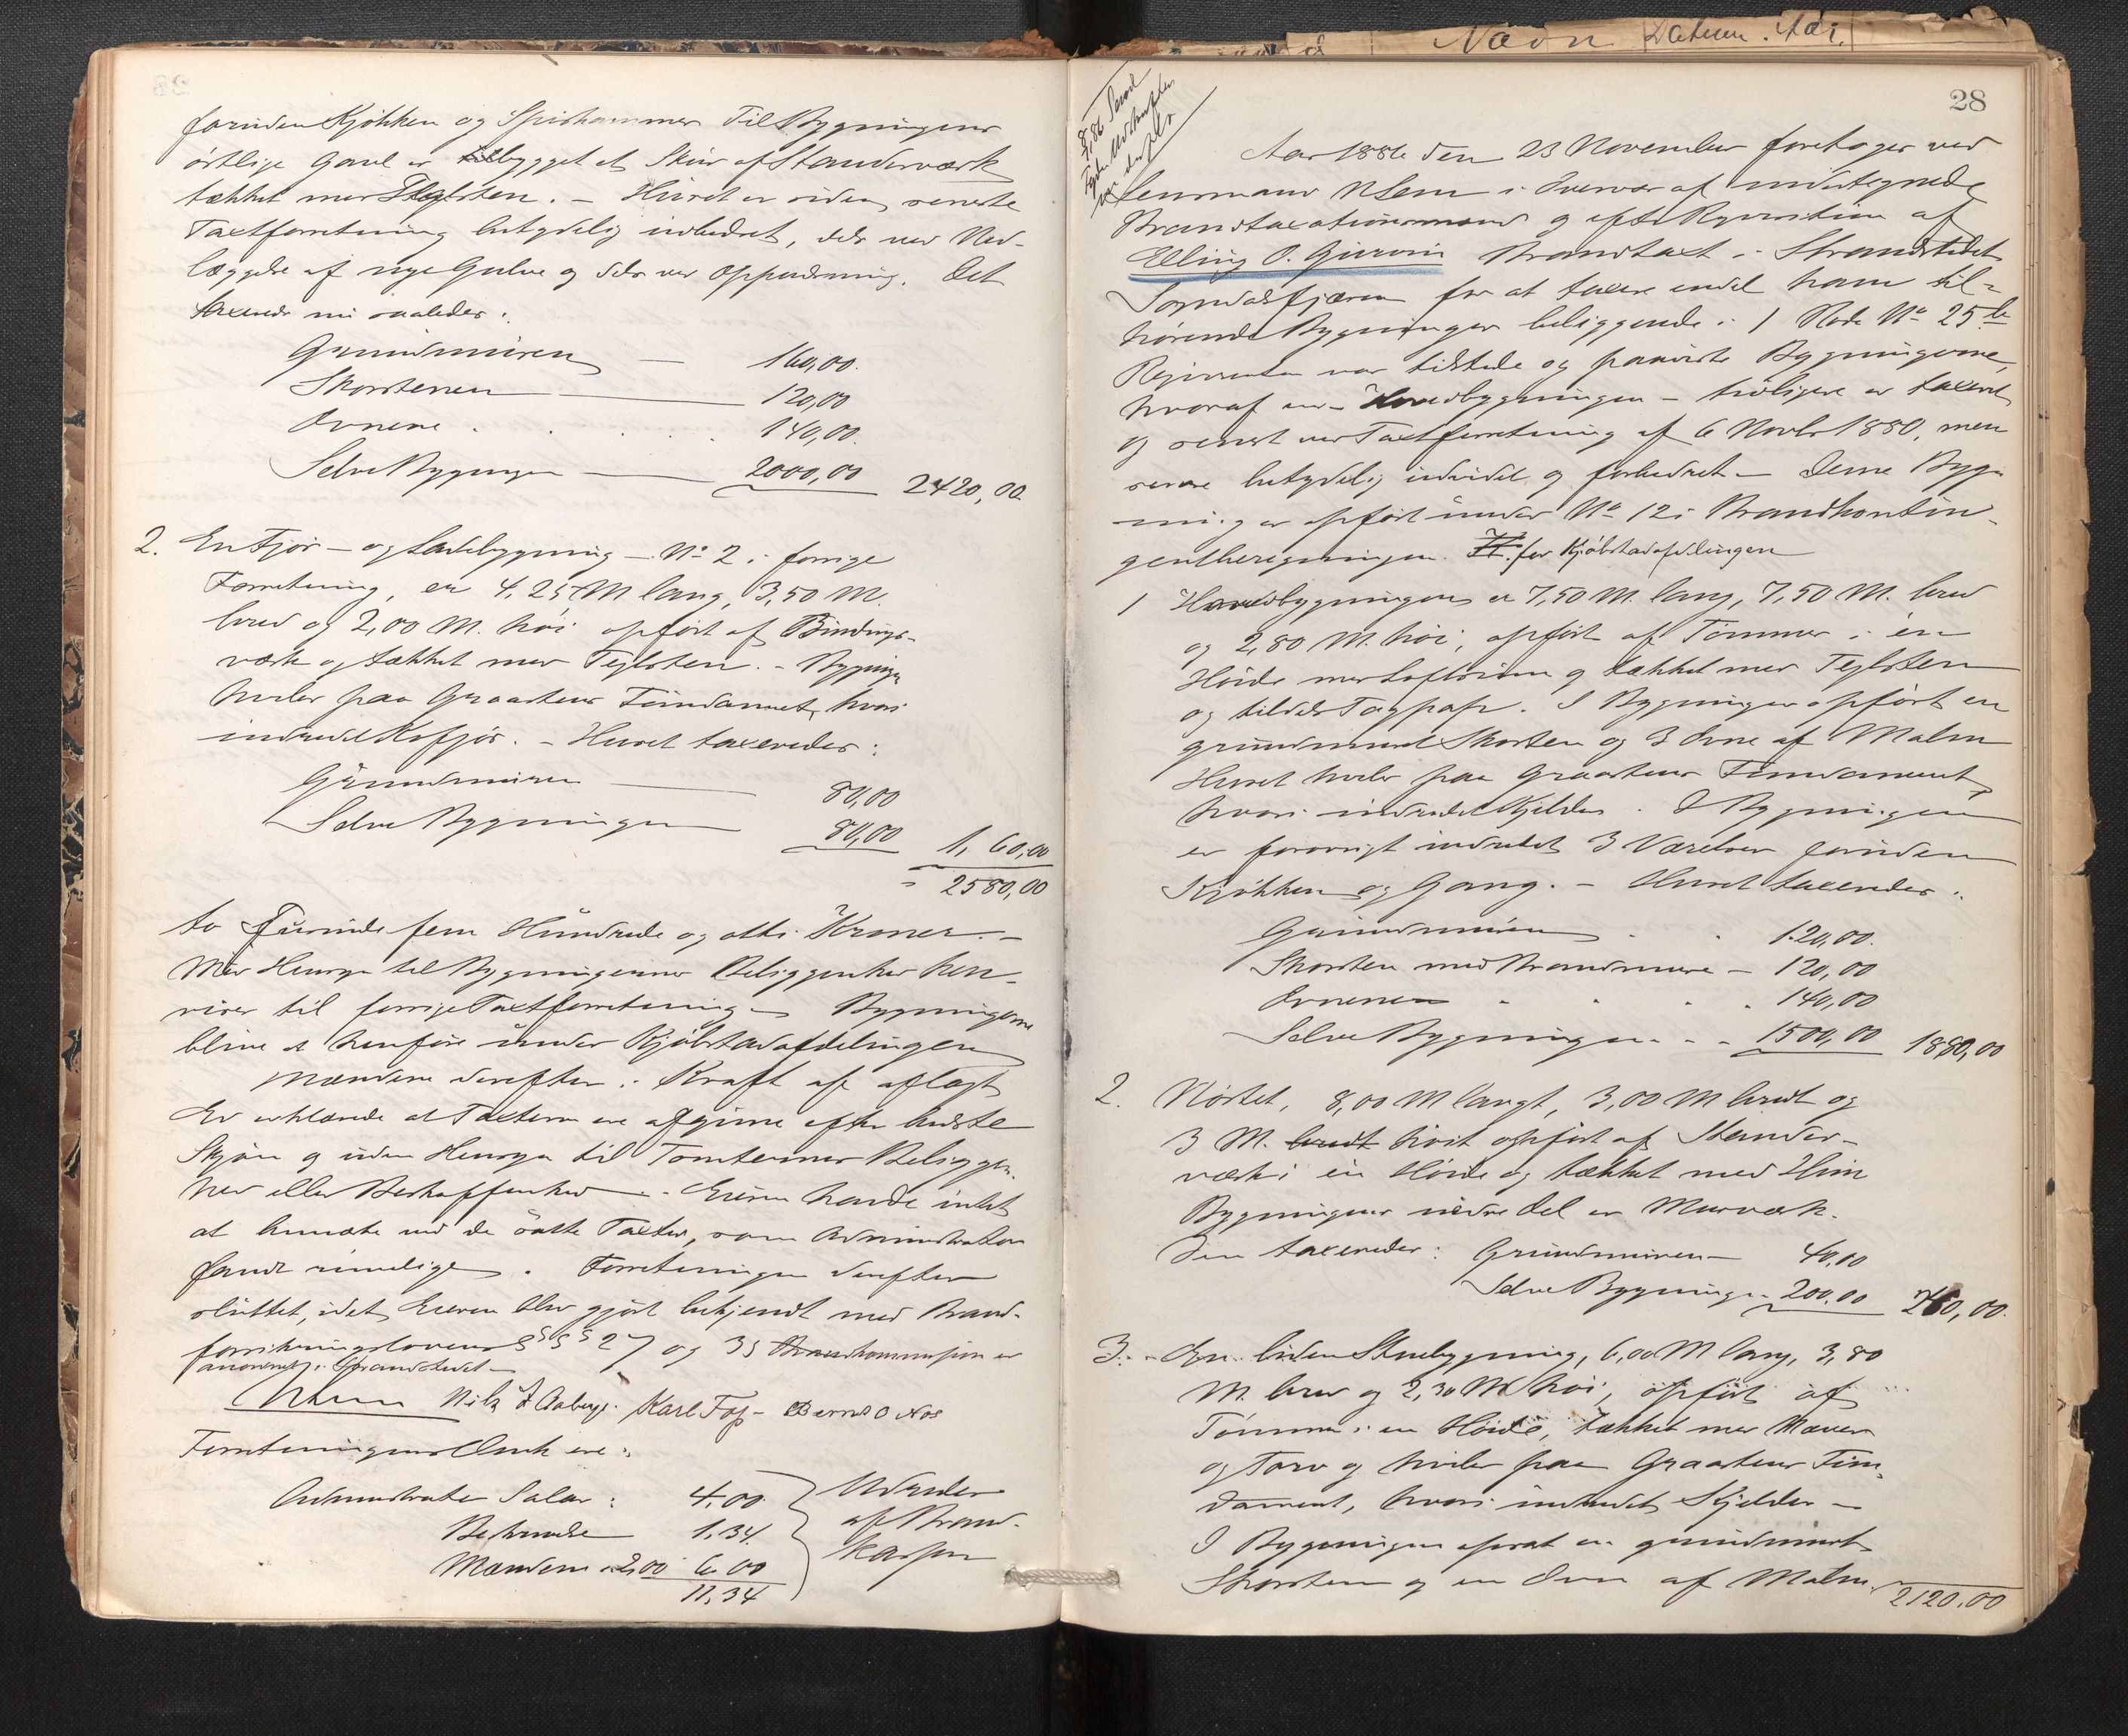 foruden Kjøkken og Spiskammer Til Bygningens
østlige Gavl er tilbygget et Skur af Standerværk
tækket med Teglsten. – Huset er siden seneste
Taxtforretning betydelig udbedret, dels ved Ned-
læggelse af nye Gulve og dels ved Oppudsning. Det
taxeredes nu saaledes:
Grundmuren — 160,00.
Skorstenen — 120,00
Ovnene . . . . 140,00.
Selve Bygningen — 2000,00 2420,00.
2. En Fjøs – og Ladebygning – No 2 i forrige
Forretning, er 4,25 M lang, 3,50 M.
bred og 2,00 M. høi opført af Bindings-
værk og tækket med Teglsten. – Bygningen
hviler paa Graastens Fundament, hvori
indredet Kofjøs. – Huset taxeredes:
Grundmuren — 80,00
Selve Bygningen — 80,00 1,60,00
= 2580,00
to Tusinde fem Hundrede og otti Kroner. –
Med Hensyn til Bygningernes Beliggenhed hen-
vises til forrige Taxtforretning – Bygningerne
blive at henføre under Kjøbstadafdelingen
Mændene derefter i Kraft af aflagt
Ed erklærede at Taxterne ere afgivne efter bedste
Skjøn og uden Hensyn til Tomternes Beliggen-
hed eller Beskaffenhed –. Eieren havde intet
at bemærke ved de satte Taxter, som Administrator
fandt rimelige . Forretningen derefter
sluttet, idet Eieren blev gjort bekjendt med Brand-
forsikringslovens §§§ 27 og 35 Brandkommission er
anordnet i Strandstedet –
Nilz J Aaberge. Karl Fos – Bernt O Nos
Forretningens Omk ere:
Administrator Salær: 4,00. Udredes
Beskrivelse 1,34. af Brand-
Mændene a 2,00 6,00 kassen
11,34
28
Aar 1886 den 23 November foretoges ved
Lensmand NLem i Overvær af undertegnede
Brandtaxationsmænd og efter Rqvisition af
Elling O. Gurvin Brandtaxt i Strandstedet
Sogndalsfjæren for at taxere endel ham til-
hørende Bygninger beliggende i 1 Rode No 25 b
Reqvirenten var tilstede og paaviste Bygningerne,
hvoraf en – Hovedbygningen – tidligere er taxeret
og senest ved Taxtforretning af 6 Novbr 1880, men
senere betydelig udvidet og forbedret – Denne Byg-
ning er opført under No 12 i Brandkontin-
gentberegningen. for Kjøbstadafdelingen
1 Hovedbygningen er 7,50 M. lang, 7,50 M. bred
og 2,80 M. høi, opført af Tømmer i én
Høide med Loftsrum og tækket med Teglsten
og tildels Tagpap. I Bygningen opført en
grundmuret Skorsten og 3 Ovne af Malm
Huset hviler paa Graastens Fundament,
hvori indredet Kjelder. I Bygningen
er forøvrigt indredet 3 Værelser foruden
Kjøkken og Gang. – Huset taxeredes:
Grundmuren . . 120,00.
Skorsten med Brandmure – 120,00
Ovnene . . . . 140,00
Selve Bygningen . – – 1500,00 1880,00
2. Nøstet, 8,00 M langt, 3,00 M bredt og
3 M. bredt høit opført af Stander-
værk i én Høide og tækket med Hun
Bygningens nedre del er Murværk.
Den taxeredes: Grundmuren – 40,00
Selve Bygningen – 200,00 240,00.
3. – En liden Stuebygning, 6,00 M lang, 3,80
M. bred og 2,30 M høi, opført af
Tømmer i en Høide, tækket med Næver
og Torv og hviler paa Graastens Fun-
dament, hvori indredet Kjelder –
I Bygningen opsat en grundmuret
Skorsten og en Ovn af Malm
2120,00